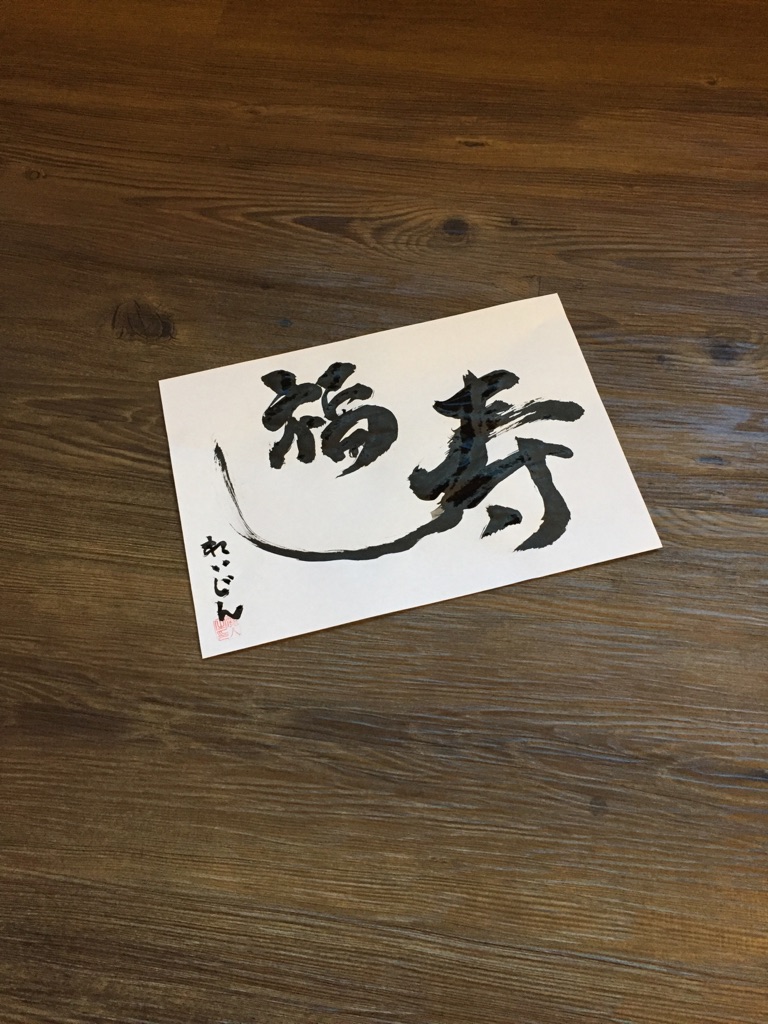 寿福
れいじん